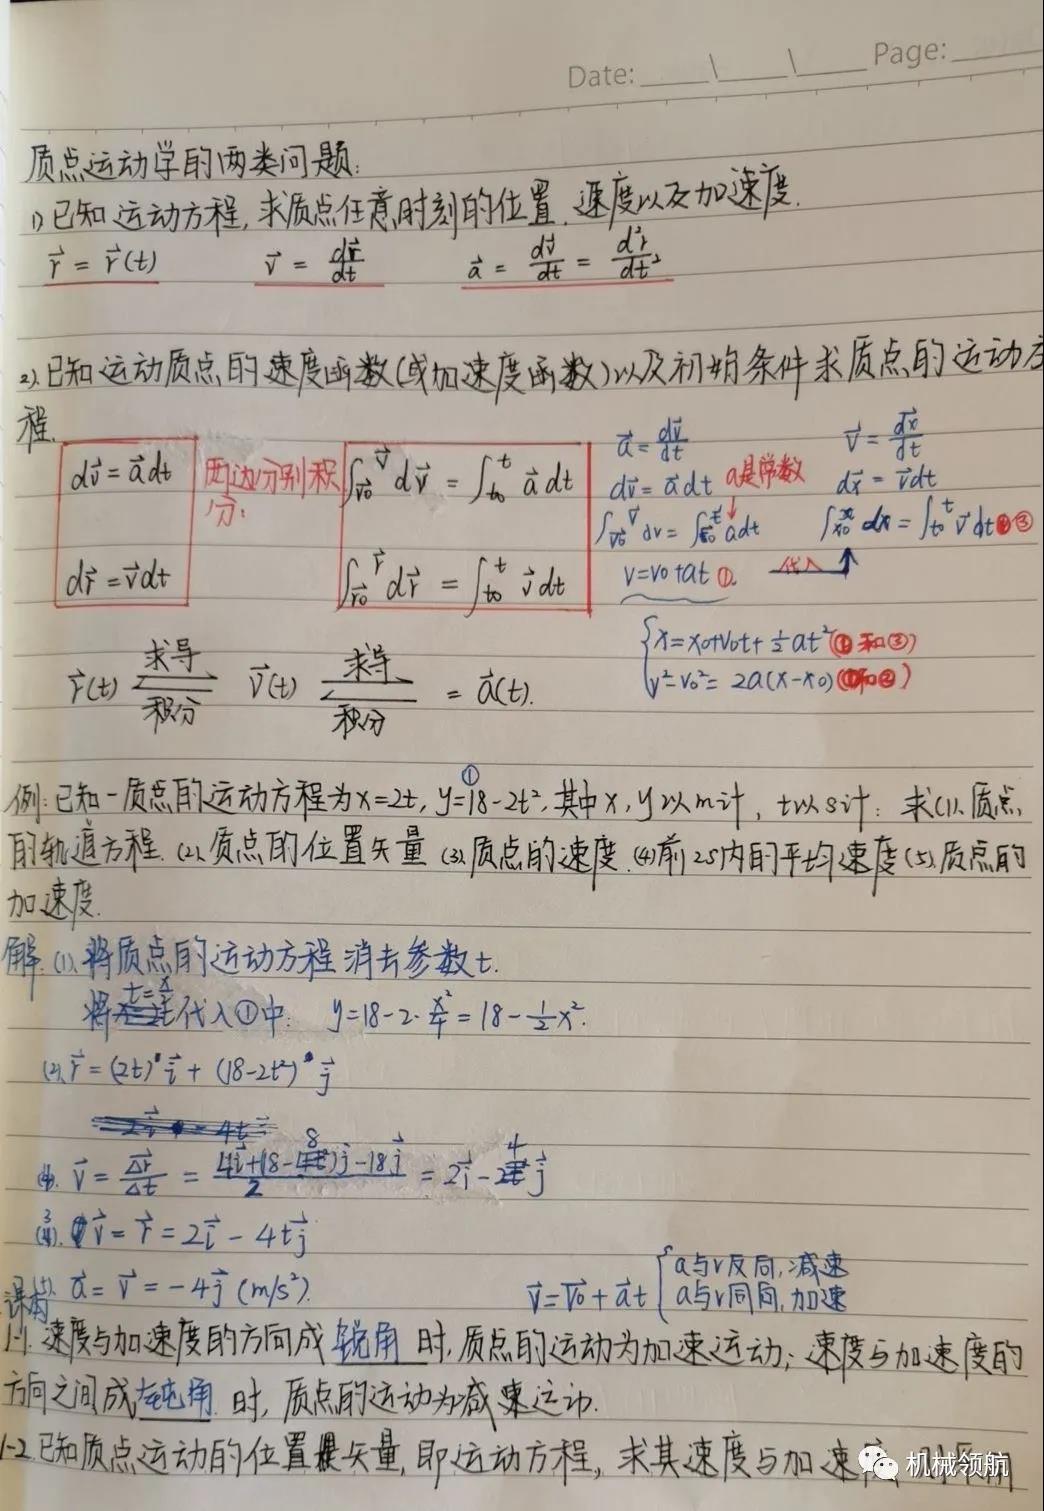 Date: ___\___\___ Page: ___
质点运动学的两类问题:
1).已知运动方程,求质点任意时刻的位置.速度以及加速度.
r⃗ = r⃗(t)   v⃗ = dr⃗/dt   a⃗ = dv⃗/dt = d²r⃗/dt²
2).已知运动质点的速度函数(或加速度函数)以及初始条件求质点的运动方
程.
dv⃗ = a⃗dt 两边分别积分: ∫_{v⃗0}^{v⃗} dv⃗ = ∫_{t0}^{t} a⃗dt
dr⃗ = v⃗dt ∫_{r⃗0}^{r⃗} dr⃗ = ∫_{t0}^{t} v⃗dt
a⃗ = dv⃗/dt   v⃗ = dx⃗/dt
dv⃗ = a⃗dt a是常数   dx⃗ = v⃗dt
∫_{v⃗0}^{v⃗} dv = ∫_{t0}^{t} adt   ∫_{x0}^{x} dx = ∫_{t0}^{t} v⃗dt ③
v=v0+at ①. 代入
x=x0+v0t+½at² (①和③)
v²-v0²=2a(x-x0) (①和②)
r⃗(t) 求导 积分 v⃗(t) 求导 积分 = a⃗(t).
例:已知一质点的运动方程为x=2t, y=18-2t² ①,其中x,y以m计, t以s计: 求(1).质点
的轨道方程.(2).质点的位置矢量(3).质点的速度.(4)前2s内的平均速度(5).质点的
加速度.
解.(1).将质点的运动方程消去参数t.
将t=x/2代入①中: y=18-2·x²/4=18-½x².
(2).r⃗=(2t)i⃗+(18-2t²)j⃗
(4). v⃗ = Δr⃗/Δt = (4i⃗+(18-8)j⃗-18j⃗)/2 = 2i⃗-4j⃗
(3). v⃗ = r⃗ = 2i⃗-4tj⃗
(5). a⃗ = v⃗ = -4j⃗ (m/s²).
v⃗=v⃗0+a⃗t { a与v反向,减速
a与v同向,加速
1-1. 速度与加速度的方向成锐角时,质点的运动为加速运动;速度与加速度的
方向之间成钝角时,质点的运动为减速运动.
1-2.已知质点运动的位置矢量,即运动方程,求其速度与加速
机械领航